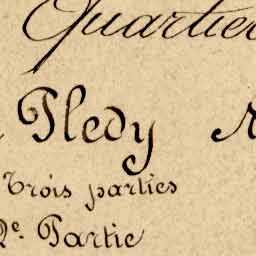 Quartier
Pledy
Trois parties
2e. Partie